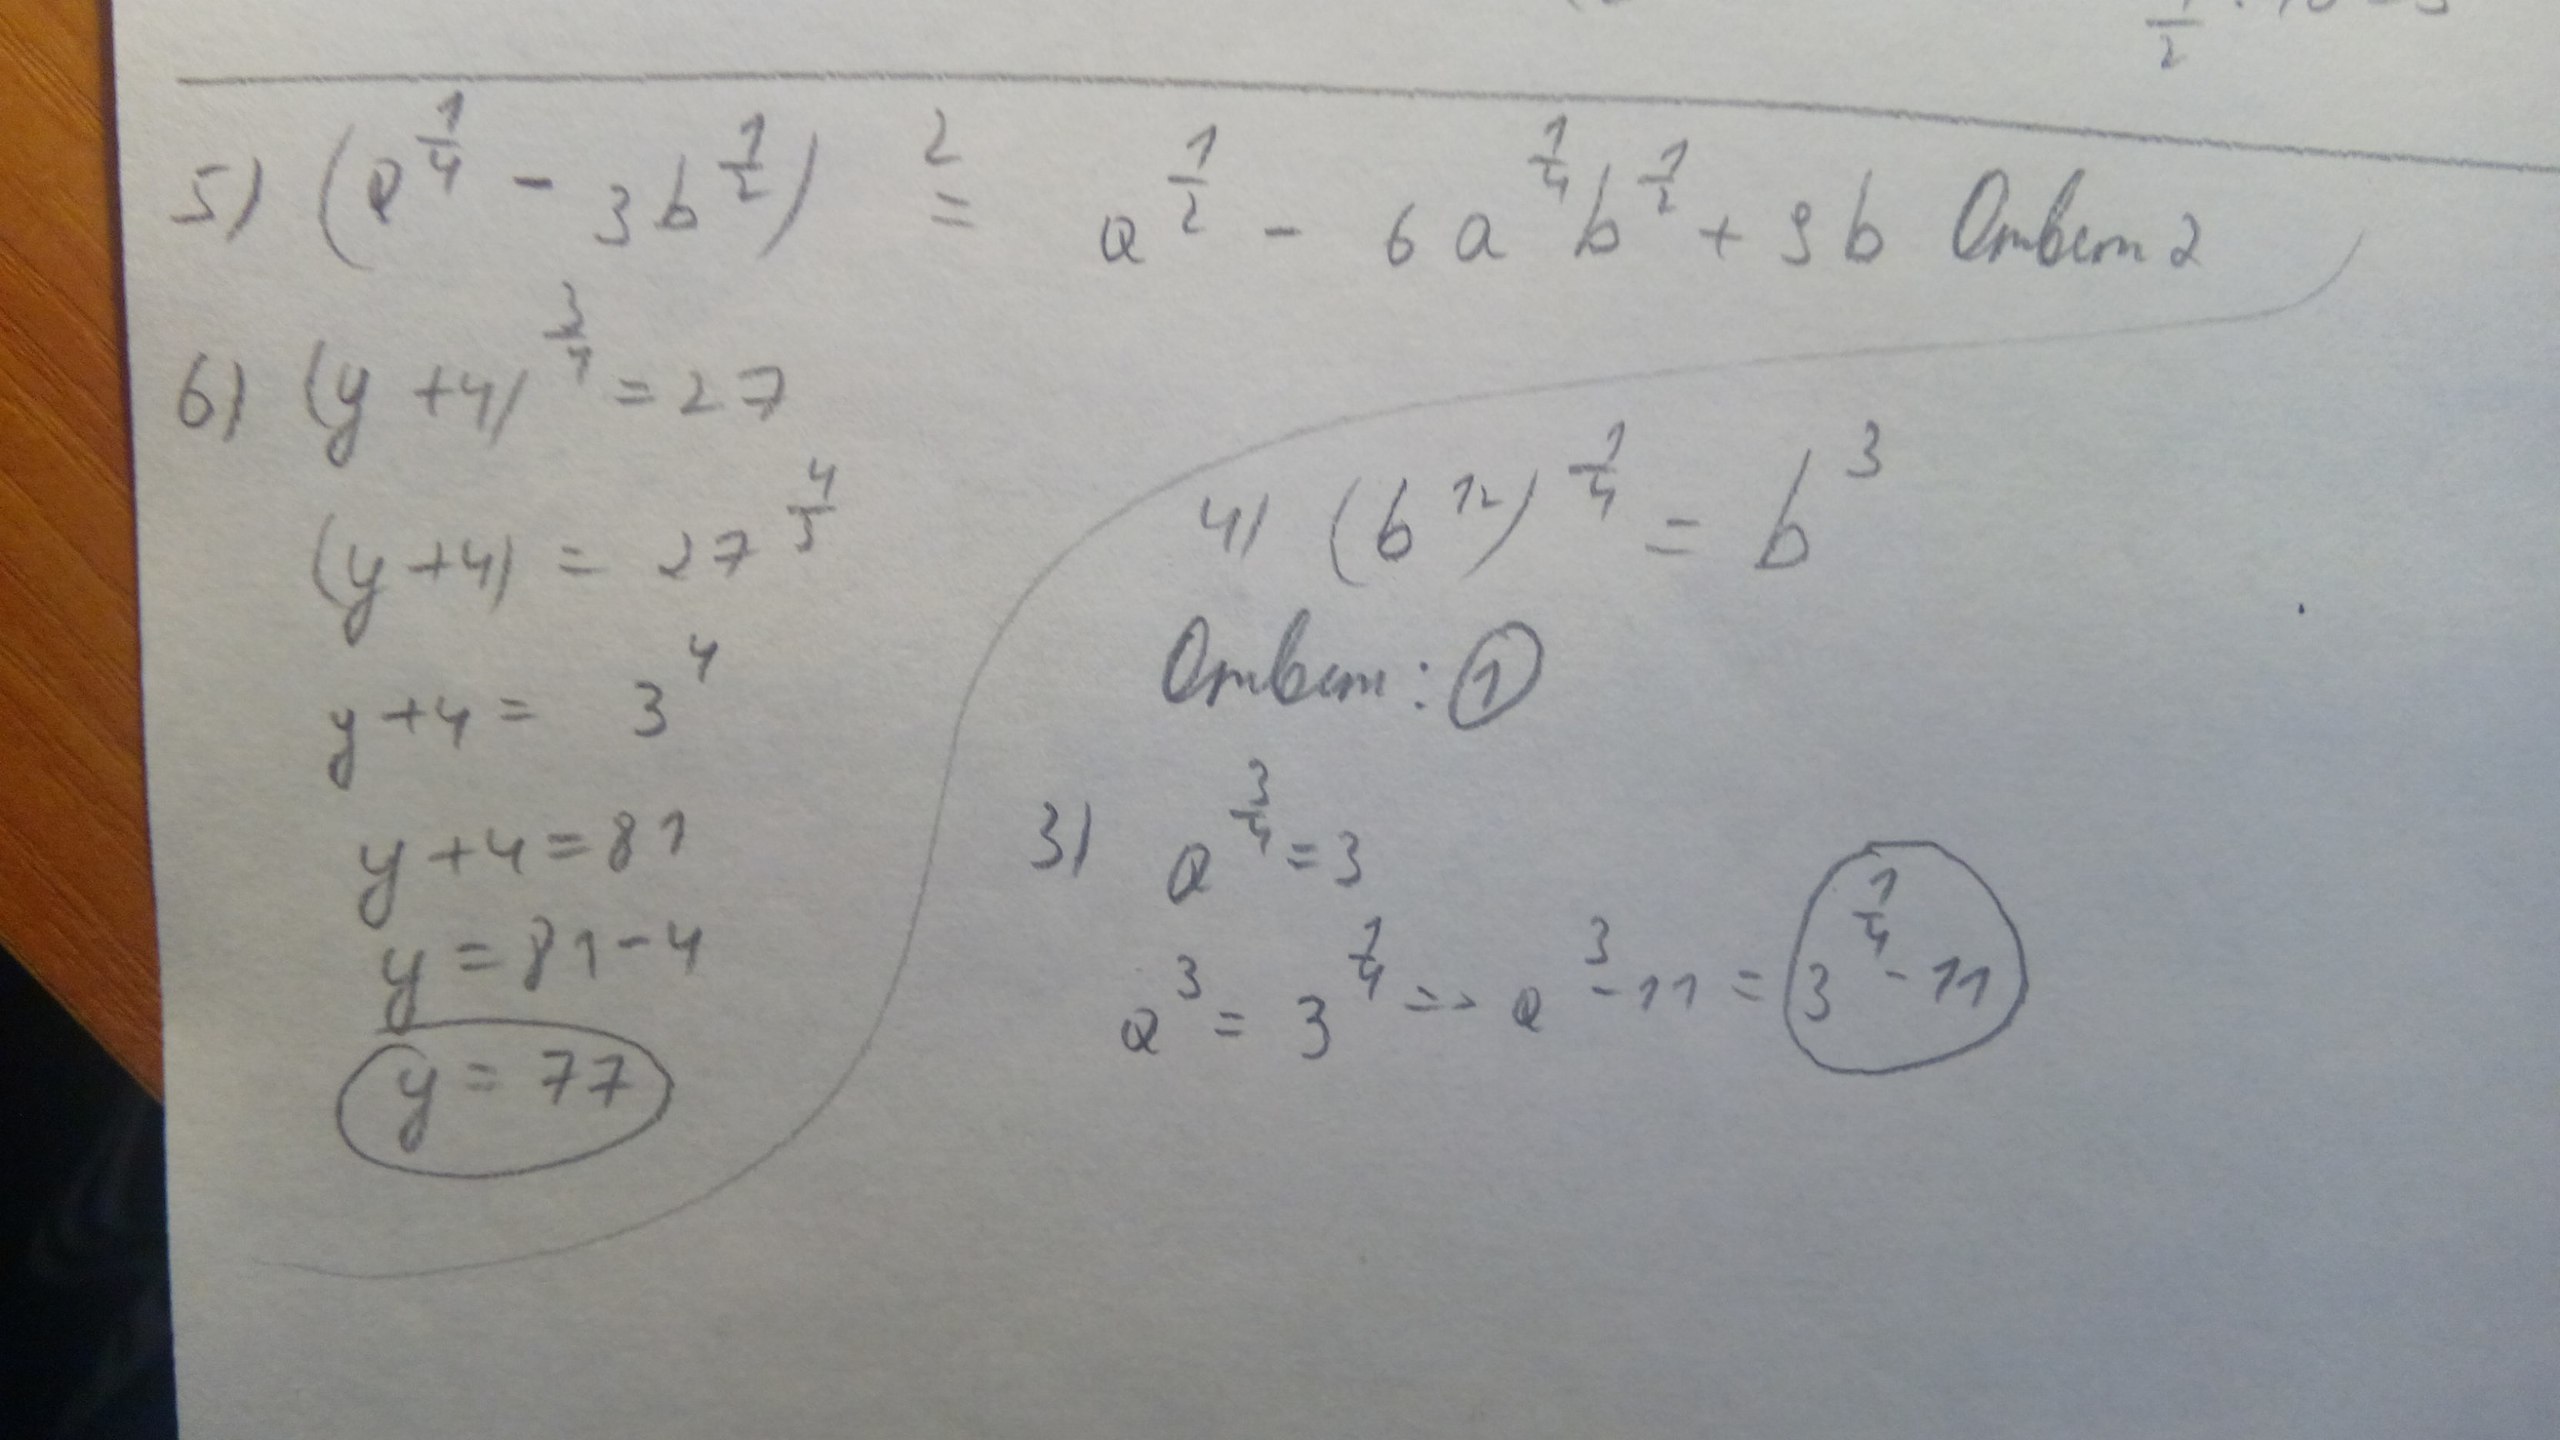 5) (a^{1/4} - 3b^{1/2})^2 = a^{1/2} - 6a^{1/4}b^{1/2} + 9b Ответ 2
6) (y+4)^{3/4} = 27
(y+4) = 27^{4/3}
y+4 = 3^4
y+4=81
y = 81-4
y = 77
4) (b^{12})^{1/4} = b^3
Ответ: 1
3) a^{3/4} = 3
a^3 = 3^{1/4} => a^3 - 11 = 3^{1/4} - 11